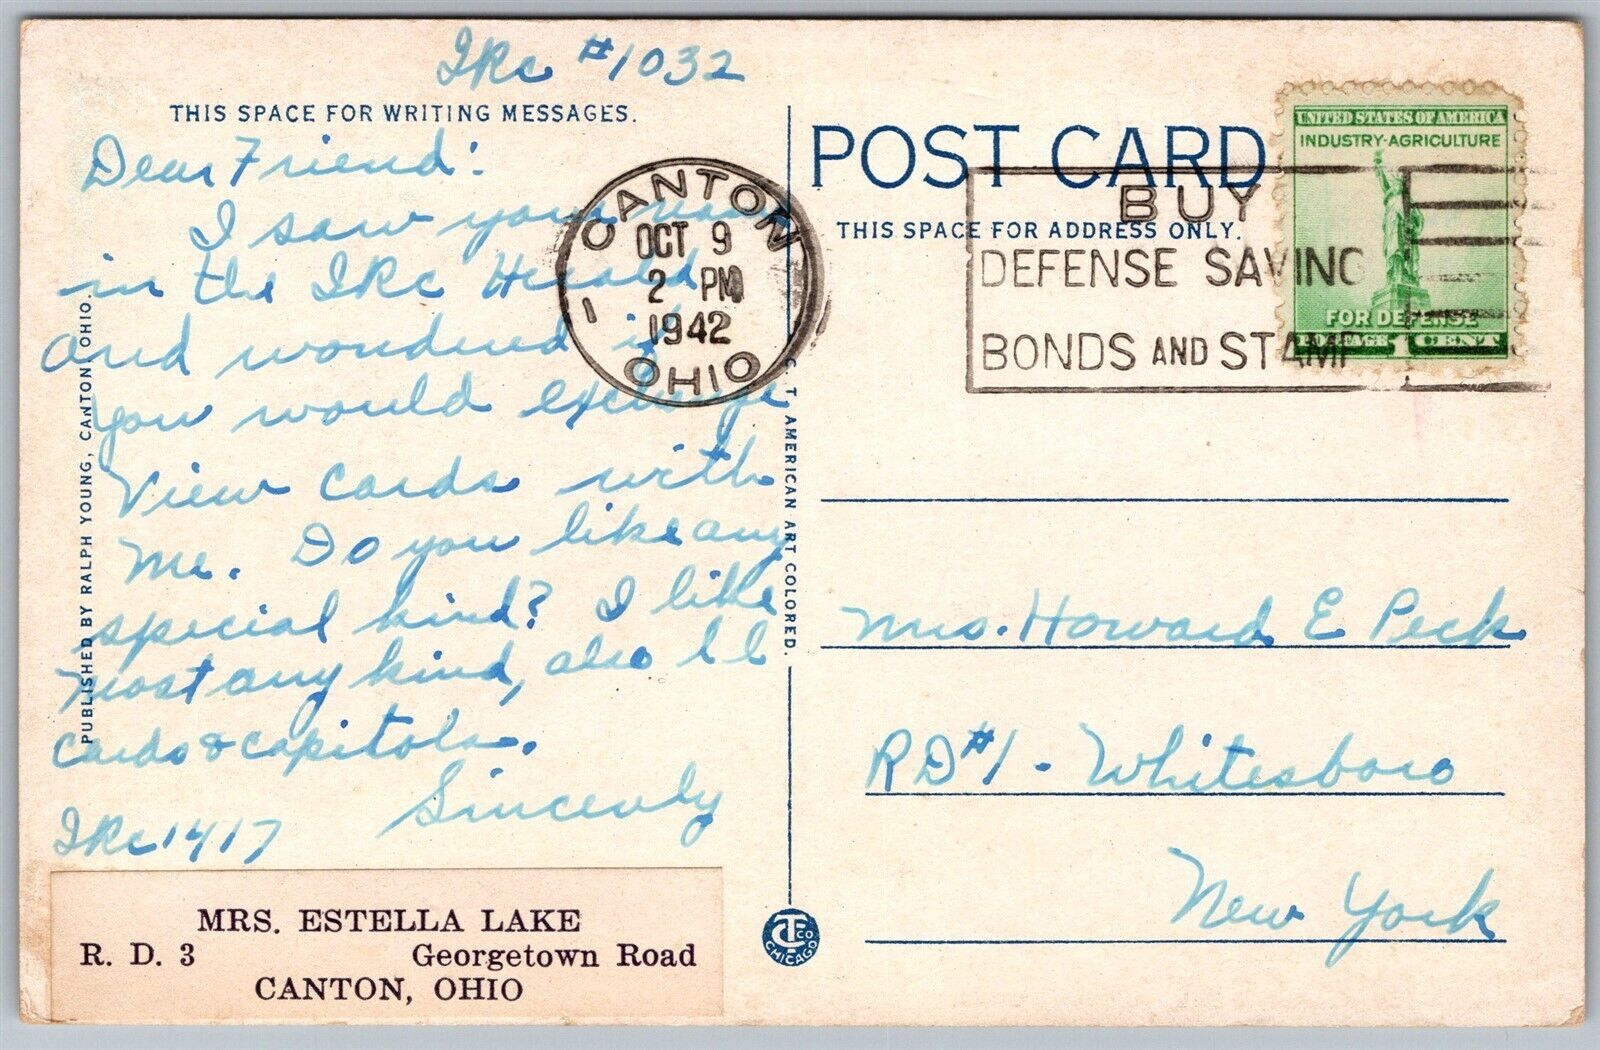 IRc #1032
THIS SPACE FOR WRITING MESSAGES.
Dear Friend:
I saw your name
in the IRc Herald
and wondered if
you would exchange
View cards with
me. Do you like any
special kind? I like
most any kind, also L L
cards & capitols.
Sincerely
IRc 1417
MRS. ESTELLA LAKE
R. D. 3 Georgetown Road
CANTON, OHIO
PUBLISHED BY RALPH YOUNG, CANTON, OHIO.
CANTON
OCT 9
2 PM
1942
OHIO
1
C. T. AMERICAN ART COLORED.
C T CO. CHICAGO
POST CARD
THIS SPACE FOR ADDRESS ONLY.
BUY
DEFENSE SAVING
BONDS AND STAMP
UNITED STATES OF AMERICA
INDUSTRY-AGRICULTURE
FOR DEFENSE
POSTAGE 1 CENT
Mrs. Howard E Peck
RD #1 - Whitesboro
New York